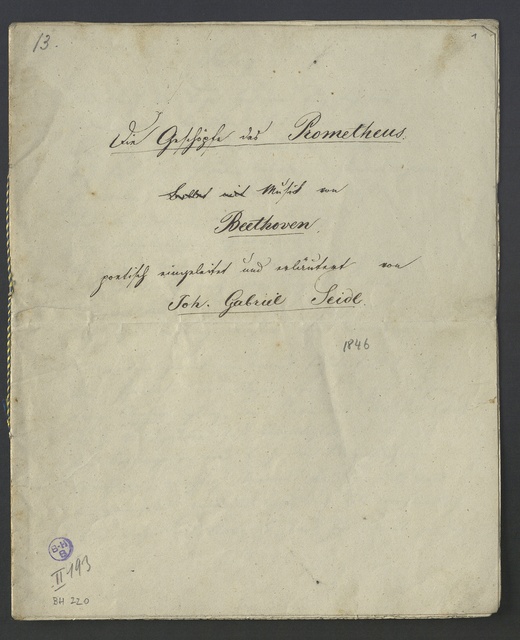 13.
1
Die Geschöpfe des Prometheus.
Ballet mit Musik von
Beethoven.
poetisch eingeleitet und erläutert von
Joh. Gabriel Seidl.
1846
B-H
B
II 193
BH 220